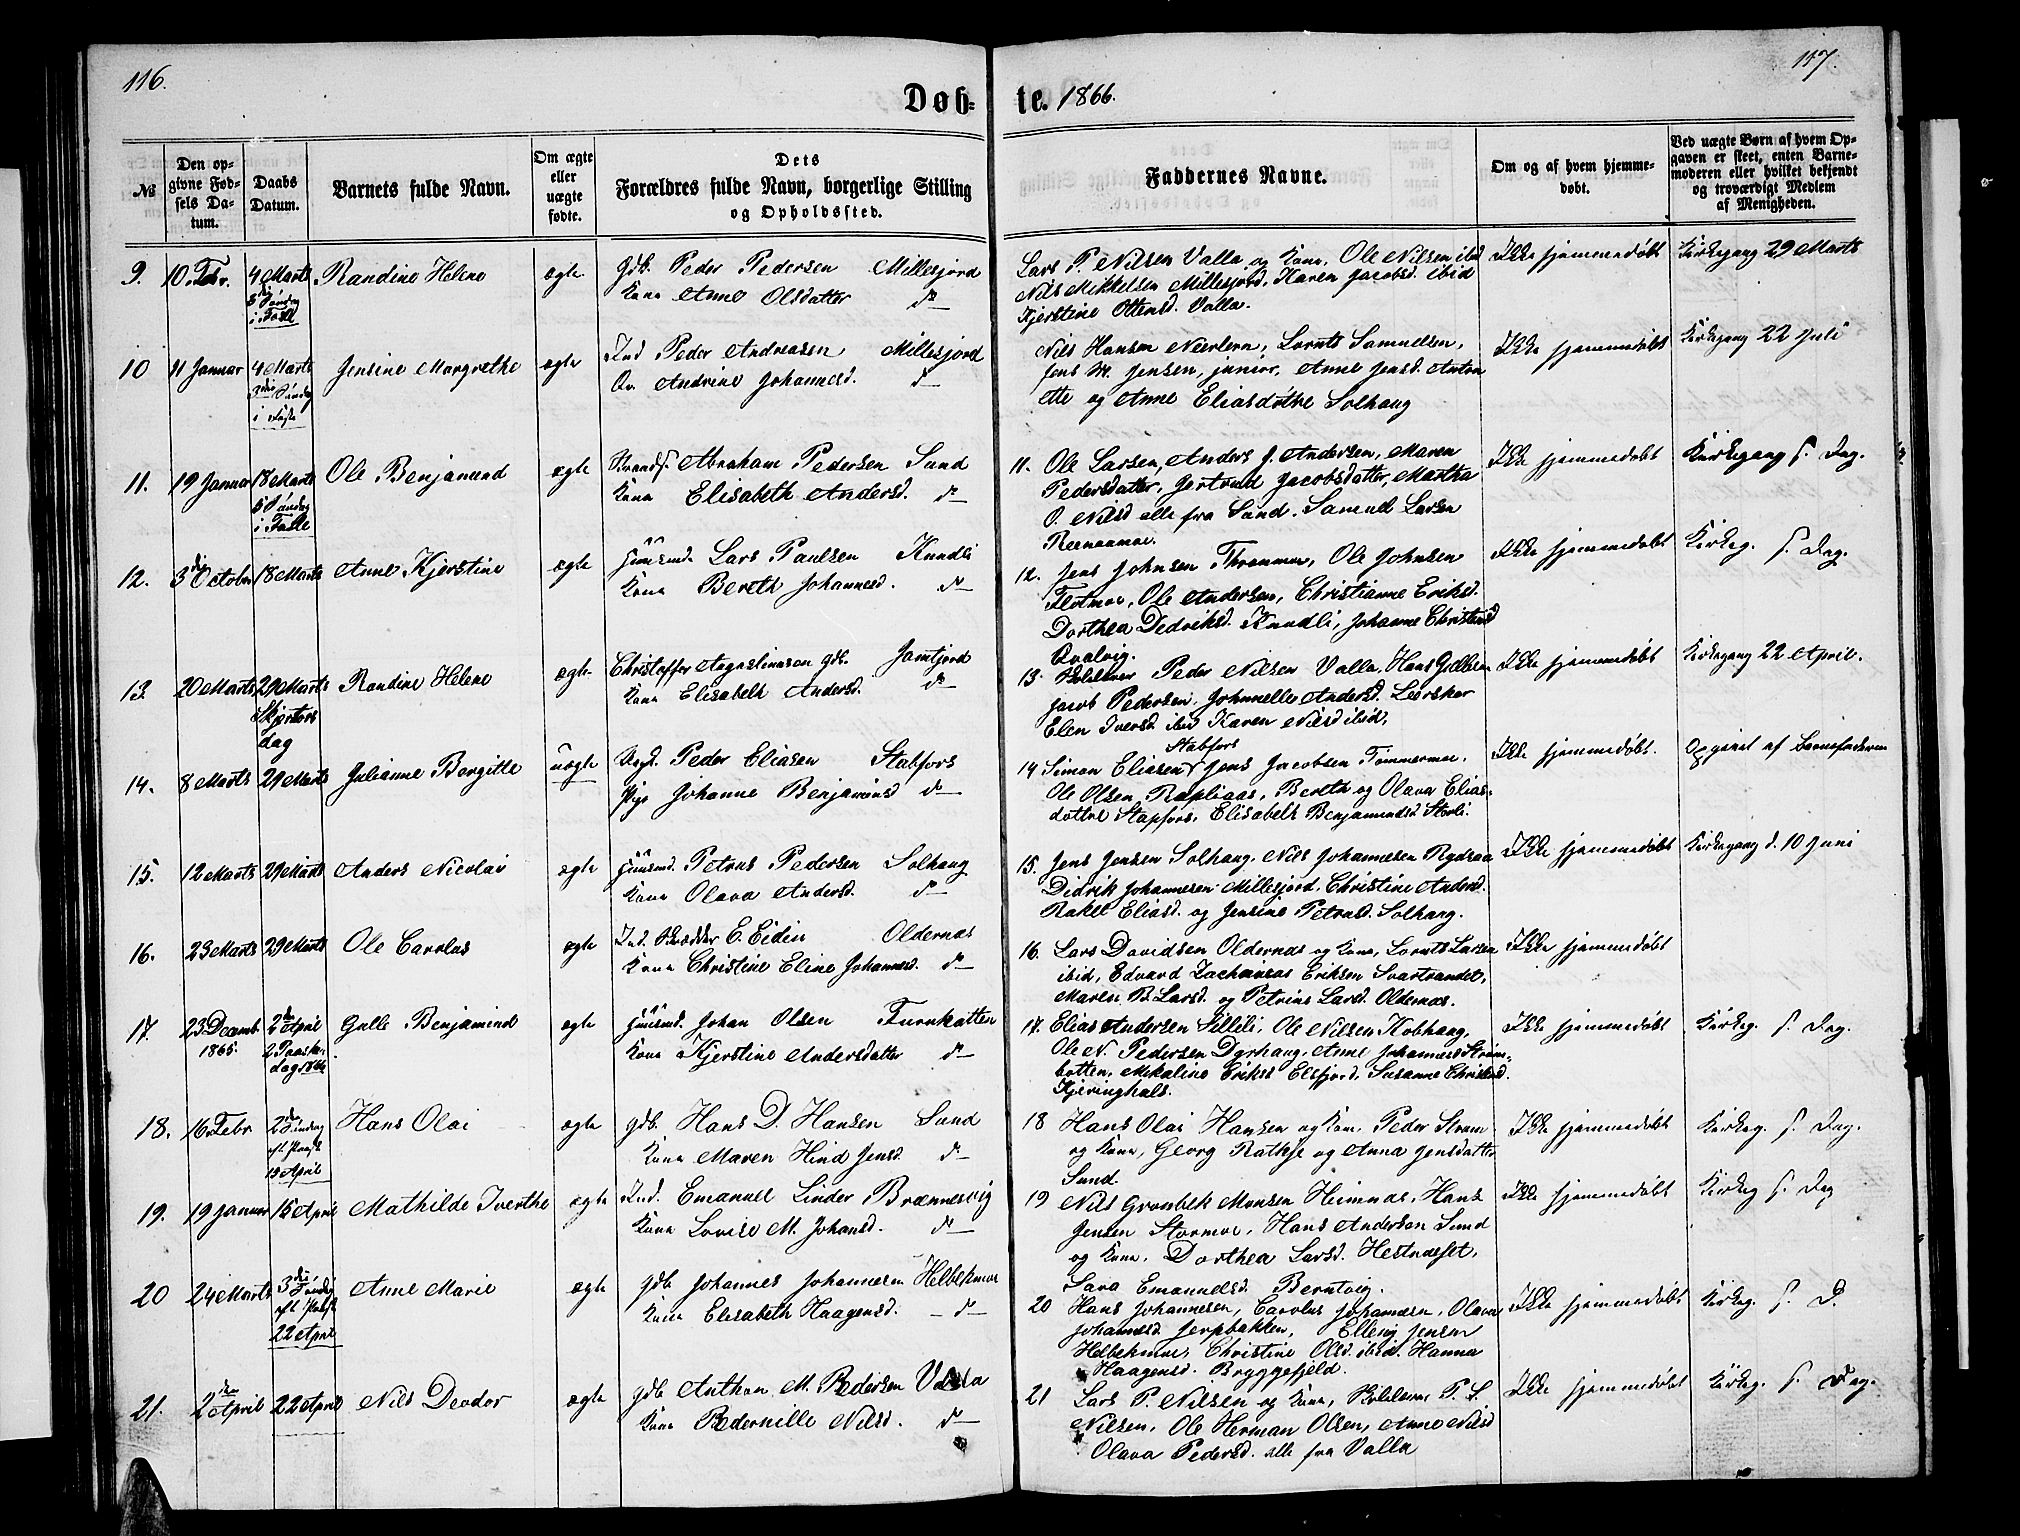 116.
117.
Døb-
te. 1866.
№
Den op-
givne Fød-
sels Da-
tum.
Daabs
Datum.
Barnets fulde Navn.
Om ægte
eller
uægte
fødte.
Dets
Forældres fulde Navn, borgerlige Stilling
og Opholdssted.
Faddernes Navne.
Om og af hvem hjemme-
døbt.
Ved uægte Børn af hvem Op-
gaven er skeet, enten Barne-
moderen eller hvilket bekjendt
og troværdigt Medlem
af Menigheden.
9. 10. Febr. 4 Marts Randine Helene ægte Gdb. Peder Pedersen Millesjord
Søndag
i Faste
Kone Anne Olsdatter do
Lars P. Nilsen Valla og Kone, Ole Nilsen ibd
Nils Mikkelsen Millesjord, Karen Jacobsd. ibid
Kjerstine Ottensd. Valla.
Ikke hjemmedøbt
Kirkegang 29 Marts
10 11 Januar 4 Marts Jensine Margrethe ægte Ind. Peder Andreasen Millesjord
3die Søndag
i Faste
Kv. Andrine Johannesd. do
Nils Hansen, Lornts Samuelsen,
Jens M. Jensen, junior, Anne Jensd. Anton
ette og Anne Eliasdøtre Solhaug
Ikke hjemmedøbt
Kirkegang 22 Juli
11. 19 Januar 18 Marts Ole Benjamind ægte Strands. Abraham Pedersen Sund
5 Søndag
i Faste
Kone Elisabeth Andersd. do
11. Ole Larsen, Anders J. Andersen, Maren
Pedersdatter, Gertrud Jacobsdatter, Martha
O. Nilsd alle fra Sund. Samuel Larsen
Ikke hjemmedøbt
Kirkegang s. Dag.
12. 3die October 18 Marts Anne Kjerstine ægte Huusmd. Lars Paulsen Kundli
Kone Bereth Johannesd. do
12. Jens Johnsen Thrommo, Ole Johnsen
Flotmoe, Ole Andersen, Christianne Eriksd.
Dorthea Dedriksd. Kundli, Johanne Christensd
Qvalvig.
Ikke hjemmedøbt
Kirkeg. s. Dag.
13 20 Marts 29 Marts Randine Helene ægte Christoffer Augustinusen Gdb. Jamtjord
Skjertors
dag
Kone Elisabeth Andersd. do
13. Peder Nilsen Valla, Hans
Jacob Pedersen, Johnnelle Andersd. Leerskar
Elen Iversd. ibid Karen Nilsd ibid,
Ikke hjemmedøbt
Kirkegang 22 April.
14. 8 Marts 29 Marts Julianne Bergitte uægte Ungk. Peder Eliasen Stabfors
Pige Johanne Benjaminsd do
Stabfors
14 Simon Eliasen, Jens Jacobsen Tømmermoe.
Ole Olsen Rapliaas, Bereth og Olava Elias-
døttre Stapfors, Elisabeth Benjamindsd Storli.
Ikke hjemmedøbt.
Opgivet af Barnefaderen
15. 12 Marts 29 Marts Anders Nicolai ægte Huusmd. Petrus Pedersen Solhaug
Kone Olava Andersd. do
15. Jens Jensen Solhaug, Nils Johannesen Rydsaa
Didrik Johannesen Millesjord, Christine Andersd.
Rakel Eliasd. og Jensine Petrusd. Solhaug.
Ikke hjemmedøbt
Kirkegang d. 10 Juni
16. 23 Marts 29 Marts Ole Carolus ægte Ind. Skrædder E. Eidin Oldernæs
Kone Christine Eline Johannesd. do
16. Lars Davidsen Oldernæs og Kone, Lornts Larsen
ibid, Edvard Zachariæs Eriksen Svartvandet,
Maren B. Larsd. og Petrine Larsd. Oldernæs.
Ikke hjemmedøbt
17. 23. Decemb. 1865. 2den April Galle Benjamind ægte Huusmd. Johan Olsen Furukatten
2 Paaske
dag 1866
Kone Kjerstine Andersdatter do
17. Elias Andersen Lillili, Ole Nilsen Kobhaug,
Ole N. Pedersen Dyrhaug, Anne Johannesd Strøm-
botten, Mekaline Eriksd Elsfjord, Susanne Christensd.
Kjeringhals.
Ikke hjemmedøbt
Kirkeg. s. Dag.
18. 16. Febr 2den Søndag Hans Olai ægte Gdb. Hans D. Hansen Sund
eft. Paaske
15 April
Kone Maren Hind Jensd. do
18 Hans Olai Hansen og Kone Peder Strøm
og Kone, Georg Rathje og Anna Jensdatter
Sund.
Ikke hjemmedøbt
Kirkeg. s. Dag.
19. 19 Januar 15 April Mathilde Iverthe ægte Ind. Emanuel Linder Brænnesvig
Kone Lovise M. Johansd. do
19 Nils Grønbek Monsen Heimnæs, Hans
Jensen Stormoe, Hans Andersen Sund
og Kone, Dorthea Larsd. Hestnæset,
Sara Emanuelsd. Berntvig.
Ikke hjemmedøbt
Kirkeg s. Dag
20 24 Marts 3die Søndag Anne Marie ægte Gdb Johannes Johannesen Helbekmoe
eft. Paaske
22 April
Kone Elisabeth Haagensd. do
20 Hans Johannesen, Carolus Johannesen, Olava
Johannesd Jerpbakken, Elling Jensen
Helbekmoe, Christine Olsd. ibid. Hanna
Haagensd. Bryggefjeld.
Ikke hjemmedøbt
Kirkeg. s. D.
21. 2den April 22 April Nils Deodor ægte Gdb Anthon M. Pedersen Valla
Kone Pedernille Nilsd. do
21 Lars P. Nilsen og Kone, P. L.
Nilsen, Ole Herman Olsen, Anne Nilsd
Olava Pedersd. alle fra Valla
Ikke hjemmedøbt
Kirkeg. s. Dag.